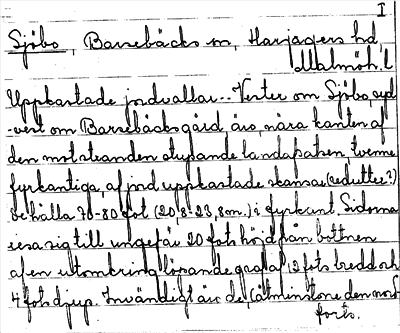 I
Sjöbo, Barsebäcks sn, Harjagers hd,
Malmöh. l
Uppkastade jordvallar.- Vester om Sjöbo, syd-
-vest om Barsebäcks gård, äro, nära kanten af
den mot stranden stupande landsatsen, tvenne
fyrkantiga, af jord uppkastade skansar (redutter?)
De hålla 70-80 fot (20,8-23,8m.) i fyrkant. Sidorna
resa sig till ungefär 20 fots höjd från bottnen
af en utomkring löpande graf af 12 fots bredd och
4 fots djup. Invändigt äro de, (åtminstone den norr
forts.